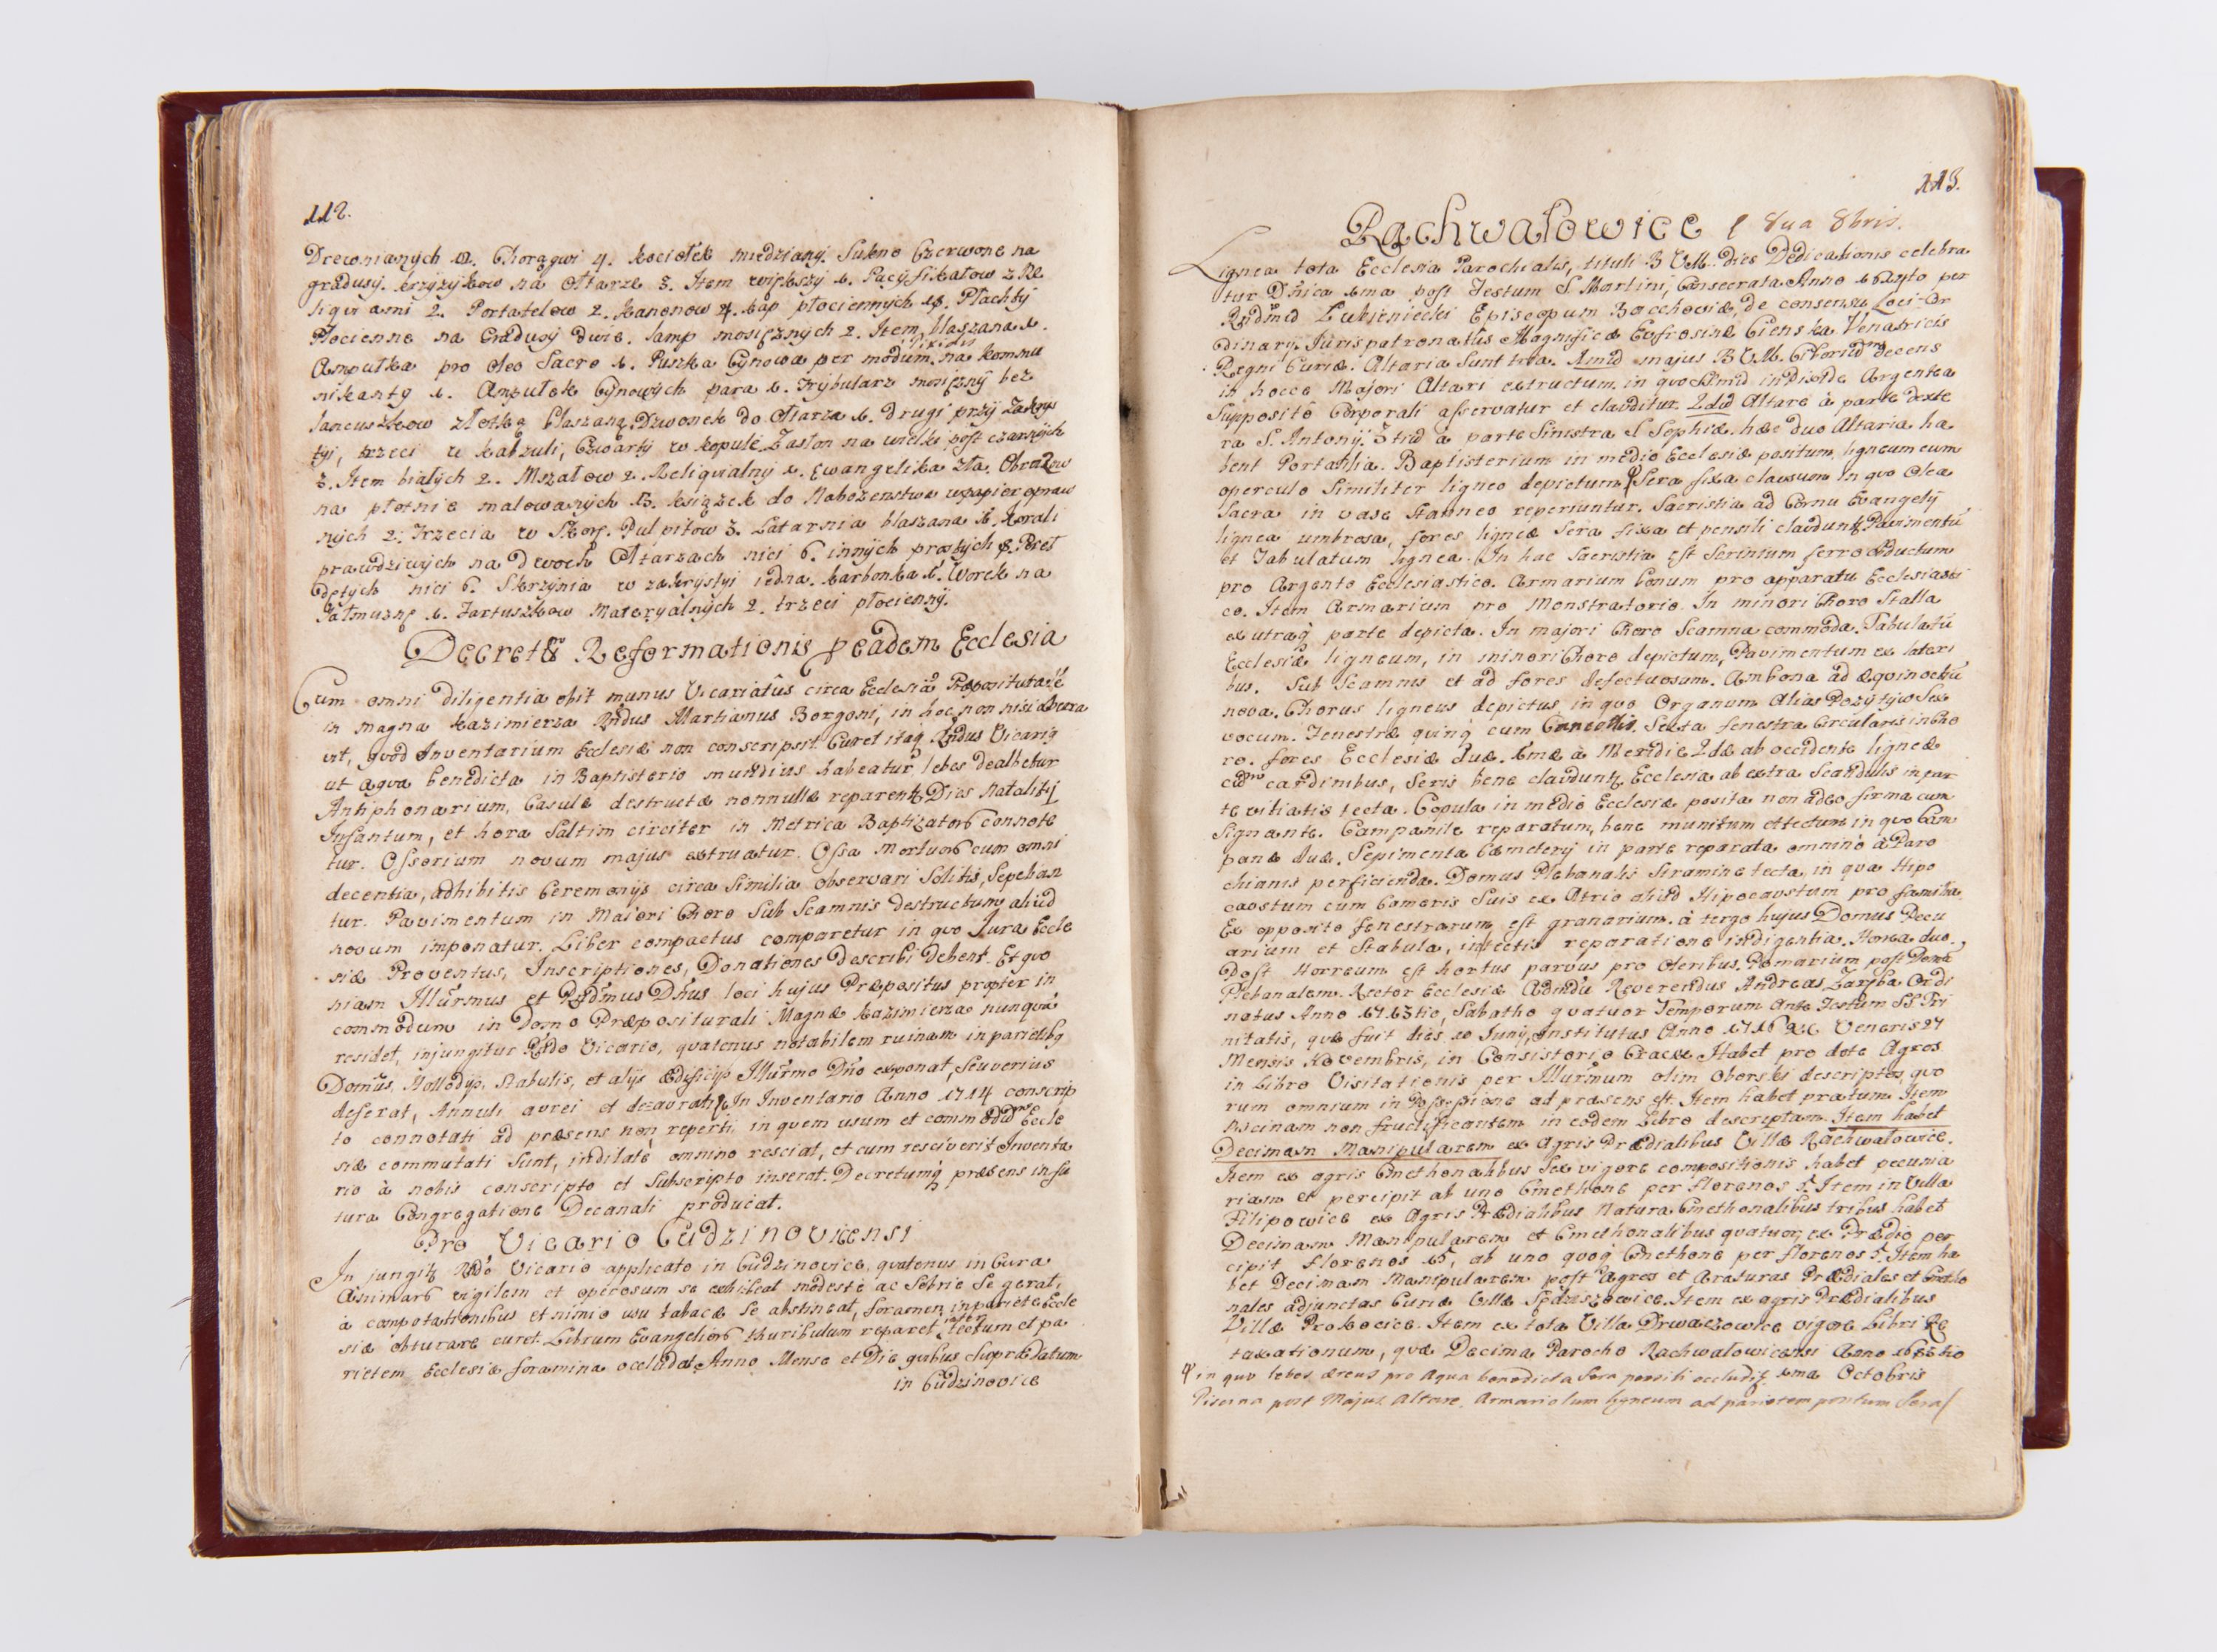 112.
Drewnianych 12. Chorągwi 4. kociołek miedziany. Sukno Czerwone na
gradusy. krzyżykow na Ołtarze 3. Item większy 1. Pacyfikałow z Re
liqvi ami 2. Portatelow 2. kanonow 4. kap płociennych 18. Płachty
Płocienne na Gradusy dwie. lamp mosiężnych 2. Item blaszana 1.
Ampułka pro Oleo Sacro 1. Puszka Cynowa per modum Pixidis na kommu
nikanty 1. Ampułek Cynowych para 1. Trybularz mosiężny bez
łancuszkow z łotką blaszaną, Dzwonek do Ołtarza 1. drugi przy Zakrys
tyi, trzeci w kabzuli, Czwarty w kopule. Zasłon na wielki post czarnych
3. Item białych 2. Mszałow 2. Reliqvialny 1. Ewangelika zła. Obrazow
na płotnie malowanych 13. książek do Nabożenstwa w papier opraw
nych 2. Trzecia w Skorę. Pulpitow 3. Latarnia blaszana 1. korali
prawdziwych na dwoch Ołtarzach nici 6. innych prostych 8. Pereł
dętych nici 6. Skrzynia w zakrystyi iedna. karbonka 1. Worek na
Jałmużnę 1. Fartuszkow Materyalnych 2. trzeci płocienny.
Decretū Reformationis p eadem Ecclesia
Cum omni diligentia obit munus Vicariatûs circa Ecclesiā Præposituralē
in magna kazimierza Rndus Martianus Borgoni, in hoc non nisi aberra
vit, qvod Inventarium Ecclesiæ non conscripsit. Curet itaq Rndus Vicarig
ut aqva benedicta in Baptisterio mundius habeatur, lebes dealbetur
Antiphonarium, Casulæ destructæ nonnullæ reparentr Dies Natalitij
Infantum, et hora Saltim circiter in Metrica Baptizatorō connote
tur. Ossorium novum majus extruatur. Ossa Mortuorō cum omni
decentia, adhibitis Ceremonijs circa Similia observari Solitis, Sepelian
tur. Pavimentum in Maiori Choro Sub Scamnis destructum aliud
novum imponatur. Liber compactus comparetur in qvo Jura Eccle
siæ Proventus, Inscriptiones, Donationes describi debent. Et qvo
niam Illūrmus et Rndmus Dn̄us loci hujus Præpositus propter in
commodum in Domo Præpositurali Magnæ kazimierza nunqvā
residet, injungitur Rndo Vicario, qvatenus notabilem ruinam in parietibg
Domūs, Hallodijs, Stabulis, et alijs ædificijs Illūrmo Dn̄o exponat, seu verius
deferat, Annuli aurei et deaurati, In Inventario Anno 1714 conscrip
to connotati ad præsens non reperti, in quem usum et commodū Eccle
siæ commutati Sunt, indilatè omnino resciat, et cum resciverit Inventa
rio à nobis conscripto et Subscripto inserat. Decretumq præsens in fu
tura Congregatione Decanali producat.
Pro Vicario Cudzinovicensi
In jungitr Rndo Vicario applicato in Cudzinovice, qvatenus in Cura
Animarō vigilem et operosum se exhibeat modestè ac Sobrie Se gerat,
à compotationibus et nimio usu tabacæ Se abstineat, foramen in pariete Eccle
siæ obturare curet. Librum Evangeliorō thuribulum reparet, inter tectum et pa
rietem Ecclesiæ foramina occludat. Anno Mense et Die qvibus Supra Datum
in Cudzinovice
113.
Rachwałowice 8va 8bris.
Lignea tota Ecclesia Parochialis, tituli B V M. dies Dedicationis celebra
tur Dn̄ica 1ma post Festum S Martini, Consecrata Anno per
Rndmū Łubieniecki Episcopum Bacchoviæ, de consensu Loci Or
dinarij. Juris patronatûs Magnificæ Eufrosinæ Venatricis
Regni Curiæ. Altaria Sunt tria. 1mū majus B V M. Ciboriū decens
in hocce Majori Altari extructum, in qvo Smū in Pixide Argentea
Supposito Corporali asservatur et clauditur. 2dū Altare à parte dexte
ra S. Antonij. 3tiū à parte Sinistra S Sophiæ. hæc duo Altaria ha
bent Portatilia. Baptisterium in medio Ecclesiæ positum, ligneum cum
operculo Similiter ligneo depictum, Sera fixa clausum in qvo olea
Sacra in vase Stanneo reperiuntur. Sacristia ad Cornu Evangelij
lignea umbrosa, fores ligneæ Sera fixa et pensili clauduntr Pavimentū
et Tabulatum lignea. In hac Sacristia est Scrinium ferro obductum
pro Argento Ecclesiastico. Armarium bonum pro apparatu Ecclesiasti
co. Item Armarium pro Monstratorio. In minori Choro Stalla
ex utraq parte depicta. In majori Choro Scamna commoda. Tabulatū
Ecclesiæ ligneum, in minori Choro depictum, Pavimentum ex lateri
bus. Sub Scamnis et ad fores defectuosum. Ambona ad æqvinoctiū
nova. Chorus ligneus depictus, in qvo Organum alias Pozytyw Sex
vocum. Fenestræ qvinq cum Cancellis, Sexta fenestra Circularis in Cho
ro. fores Ecclesiæ duæ. 1mæ à Meridie 2dæ ab occidente ligneæ
cū cardinibus, Seris bene clauduntr. Ecclesia ab extra Scandulis in par
te vitiatis tecta. Copula in medio Ecclesiæ posita non adeo firma cum
Signante. Campanile reparatum, bene munitum et tectum in qvo Cam
panæ duæ. Sepimenta Cæmeterij in parte reparata omnino à Paro
chianis perficienda. Domus Plebanalis Stramine tecta, in qva Hipo
caustum cum Cameris Suis ex Atrio aliud Hipocaustum pro familia
Ex opposito fenestrarum est granarium. à tergo hujus Domus Pecu
arium et Stabula, in tectis reparatione indigentia. Horrea duo.
Post Horreum est hortus parvus pro Oleribus. Pomarium post Domū
Plebanalem. Rector Ecclesiæ Adm̄ndū Reverendus Andreas Zaręba Ordi
natus Anno Sabatho qvatuor Temporum ante Festum SS. Tri
nitatis, qvæ fuit dies 10 Junij, Institutus Anno Veneris 27
Mensis Novembris, in Consistorio Cracx. Habet pro dote Agros
in Libro Visitationis per Illurmum olim Oborski descriptos, qvo
rum omnium in Possessione ad præsens est. Item habet pratum. Item
Piscinam non fructificantem in eodem Libro descriptam. Item habet
Decimam Manipularem ex Agris Prædialibus Villæ Rachwałowice.
Item ex agris Cmethonalibus Sex vigore compositionis habet pecunia
riam et percipit ab uno Cmethone per florenos 5. Item in Villa
Filipowice ex Agris Prædialibus Natura Cmethonalibus tribus habet
Decimam Manipularem et Cmethonalibus qvatuor, ex Prædio per
cipit florenos 15, ab uno quoq Cmethone per florenos 5. Item ha
bet Decimam Manipularem post Agros et Araturas Prædiales et Cmetho
nales adjunctas Curiæ Villæ Sędziszowice. Item ex agris Prædialibus
Villæ Prokocice. Item ex tota Villa Drwaczowice vigore Libri Re
taxationum, quæ Decima Parocho Rachwałowicensi Anno
in quo lebes æreus pro Aqua benedicta Sera pensili occluditr 1ma Octobris
Piscina post Majus Altare. Armariolum ligneum ad parietem positum Sera